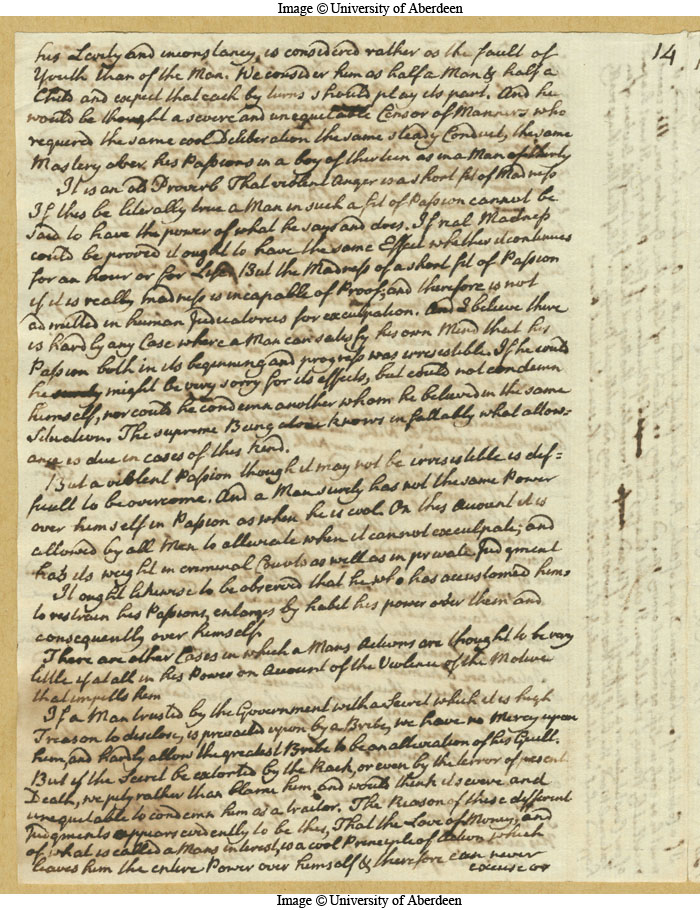 Image © University of Aberdeen
14
his Levity and inconstancy, is considered rather as the fault of
Youth than of the Man. We consider him as half a Man & half a
Child and expect that each by turns should play its part. And he
would be thought a severe and unequitable Censor of Manners who
required the same cool Deliberation the same steady Conduct, the same
Mastery over his Passions in a boy of thirteen as in a Man of thirty
It is an old Proverb That violent Anger is a short fit of Madness
If this be literally true a Man in such a fit of Passion cannot be
said to have the power of what he says and does. If real Madness
could be proved it ought to have the same Effect whether it continues
for an hour or for Life. But the Madness of a short fit of Passion
if it is really madness is incapable of Proof; and therefore is not
admitted in human Judicatories for exculpation. And I believe there
is hardly any Case where a Man can satisfy his own Mind that his
Passion both in its beginning and progress was irresistible. If he could
he surely might be very sorry for its effects, but could not condemn
himself, nor could he condemn another whom he believed in the same
Situation. The supreme Being alone knows infallibly what allow=
ance is due in cases of this kind.
But a violent Passion though it may not be irresistible is dif=
ficult to be overcome. And a Man surely has not the same Power
over himself in Passion as when he is cool. On this Account it is
allowed by all Men to alleviate when it cannot exculpate; and
has its weight in criminal Courts as well as in private Judgment
It ought likewise to be observed that he who has accustomed him=
to restrain his Passions, enlarges by habit his power over them and
consequently over himself.
There are other Cases in which a Mans Actions are thought to be very
little if at all in his Power on Account of the Violence of the Motive
that impells him
If a Man trusted by the Government with a Secret which it is high
Treason to disclose, is prevailed upon by a Bribe, we have no Mercy upon
him, and hardly allow the greatest Bribe to be an alleviation of his Guilt.
But if the Secret be extorted by the Rack, or even by the terror of present
Death, we pity rather than blame him, and would think it severe and
unequitable to condemn him as a traitor. The Reason of these different
Judgments appears evidently to be this, That the Love of Money, and
of what is called a Mans interest, is a cool Principle of Action which
leaves him the entire Power over himself & therefore can never
excuse or
Image © University of Aberdeen